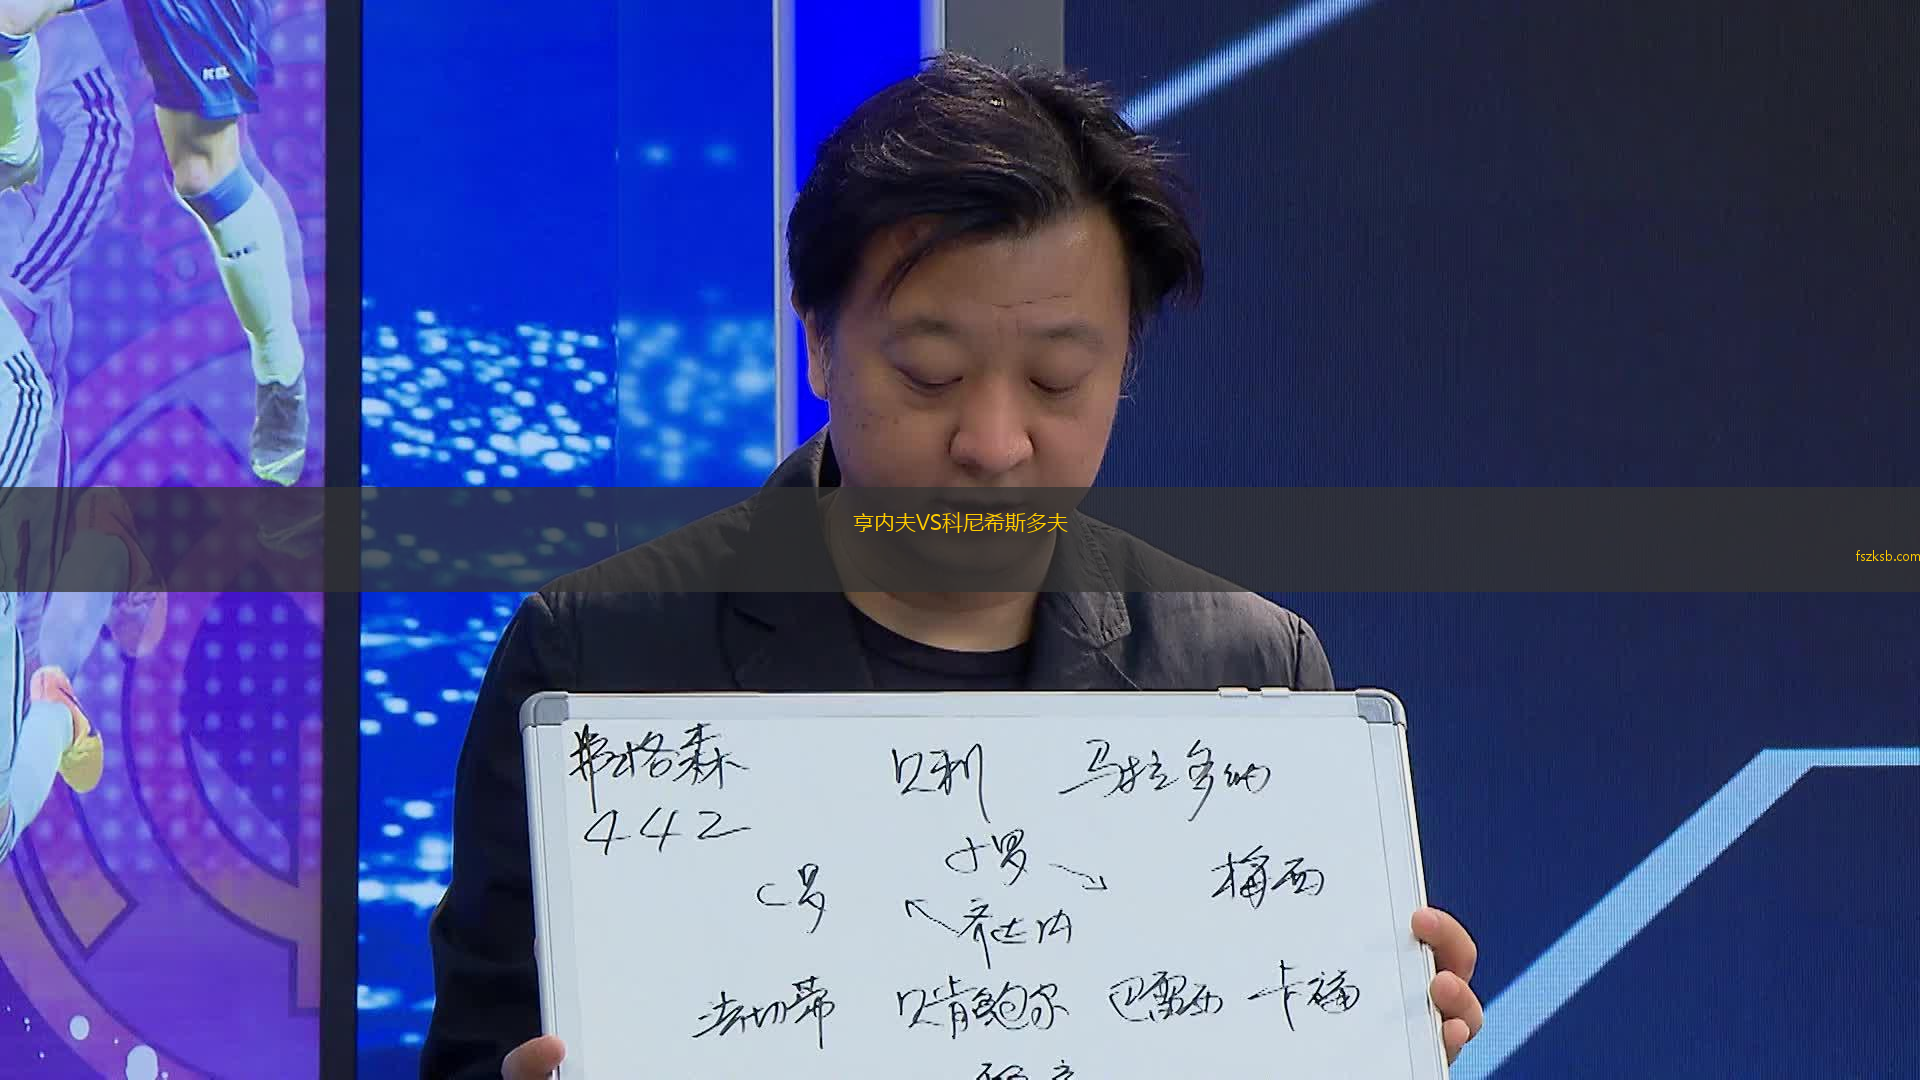 亨内夫VS科尼希斯多夫
fszksb.com
弗格森 贝利 马拉多纳
442
小罗
C罗 梅西
齐达内
法切蒂 贝肯鲍尔 巴雷西 卡福